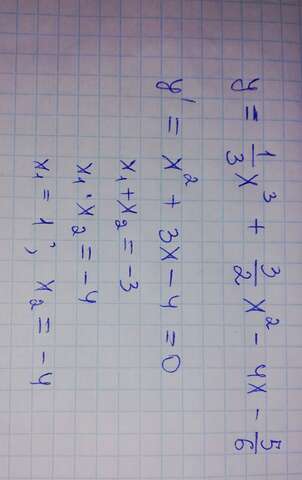 y = 1/3 x³ + 3/2 x² - 4x - 5/6
y' = x² + 3x - 4 = 0
x₁ + x₂ = -3
x₁ · x₂ = -4
x₁ = 1; x₂ = -4